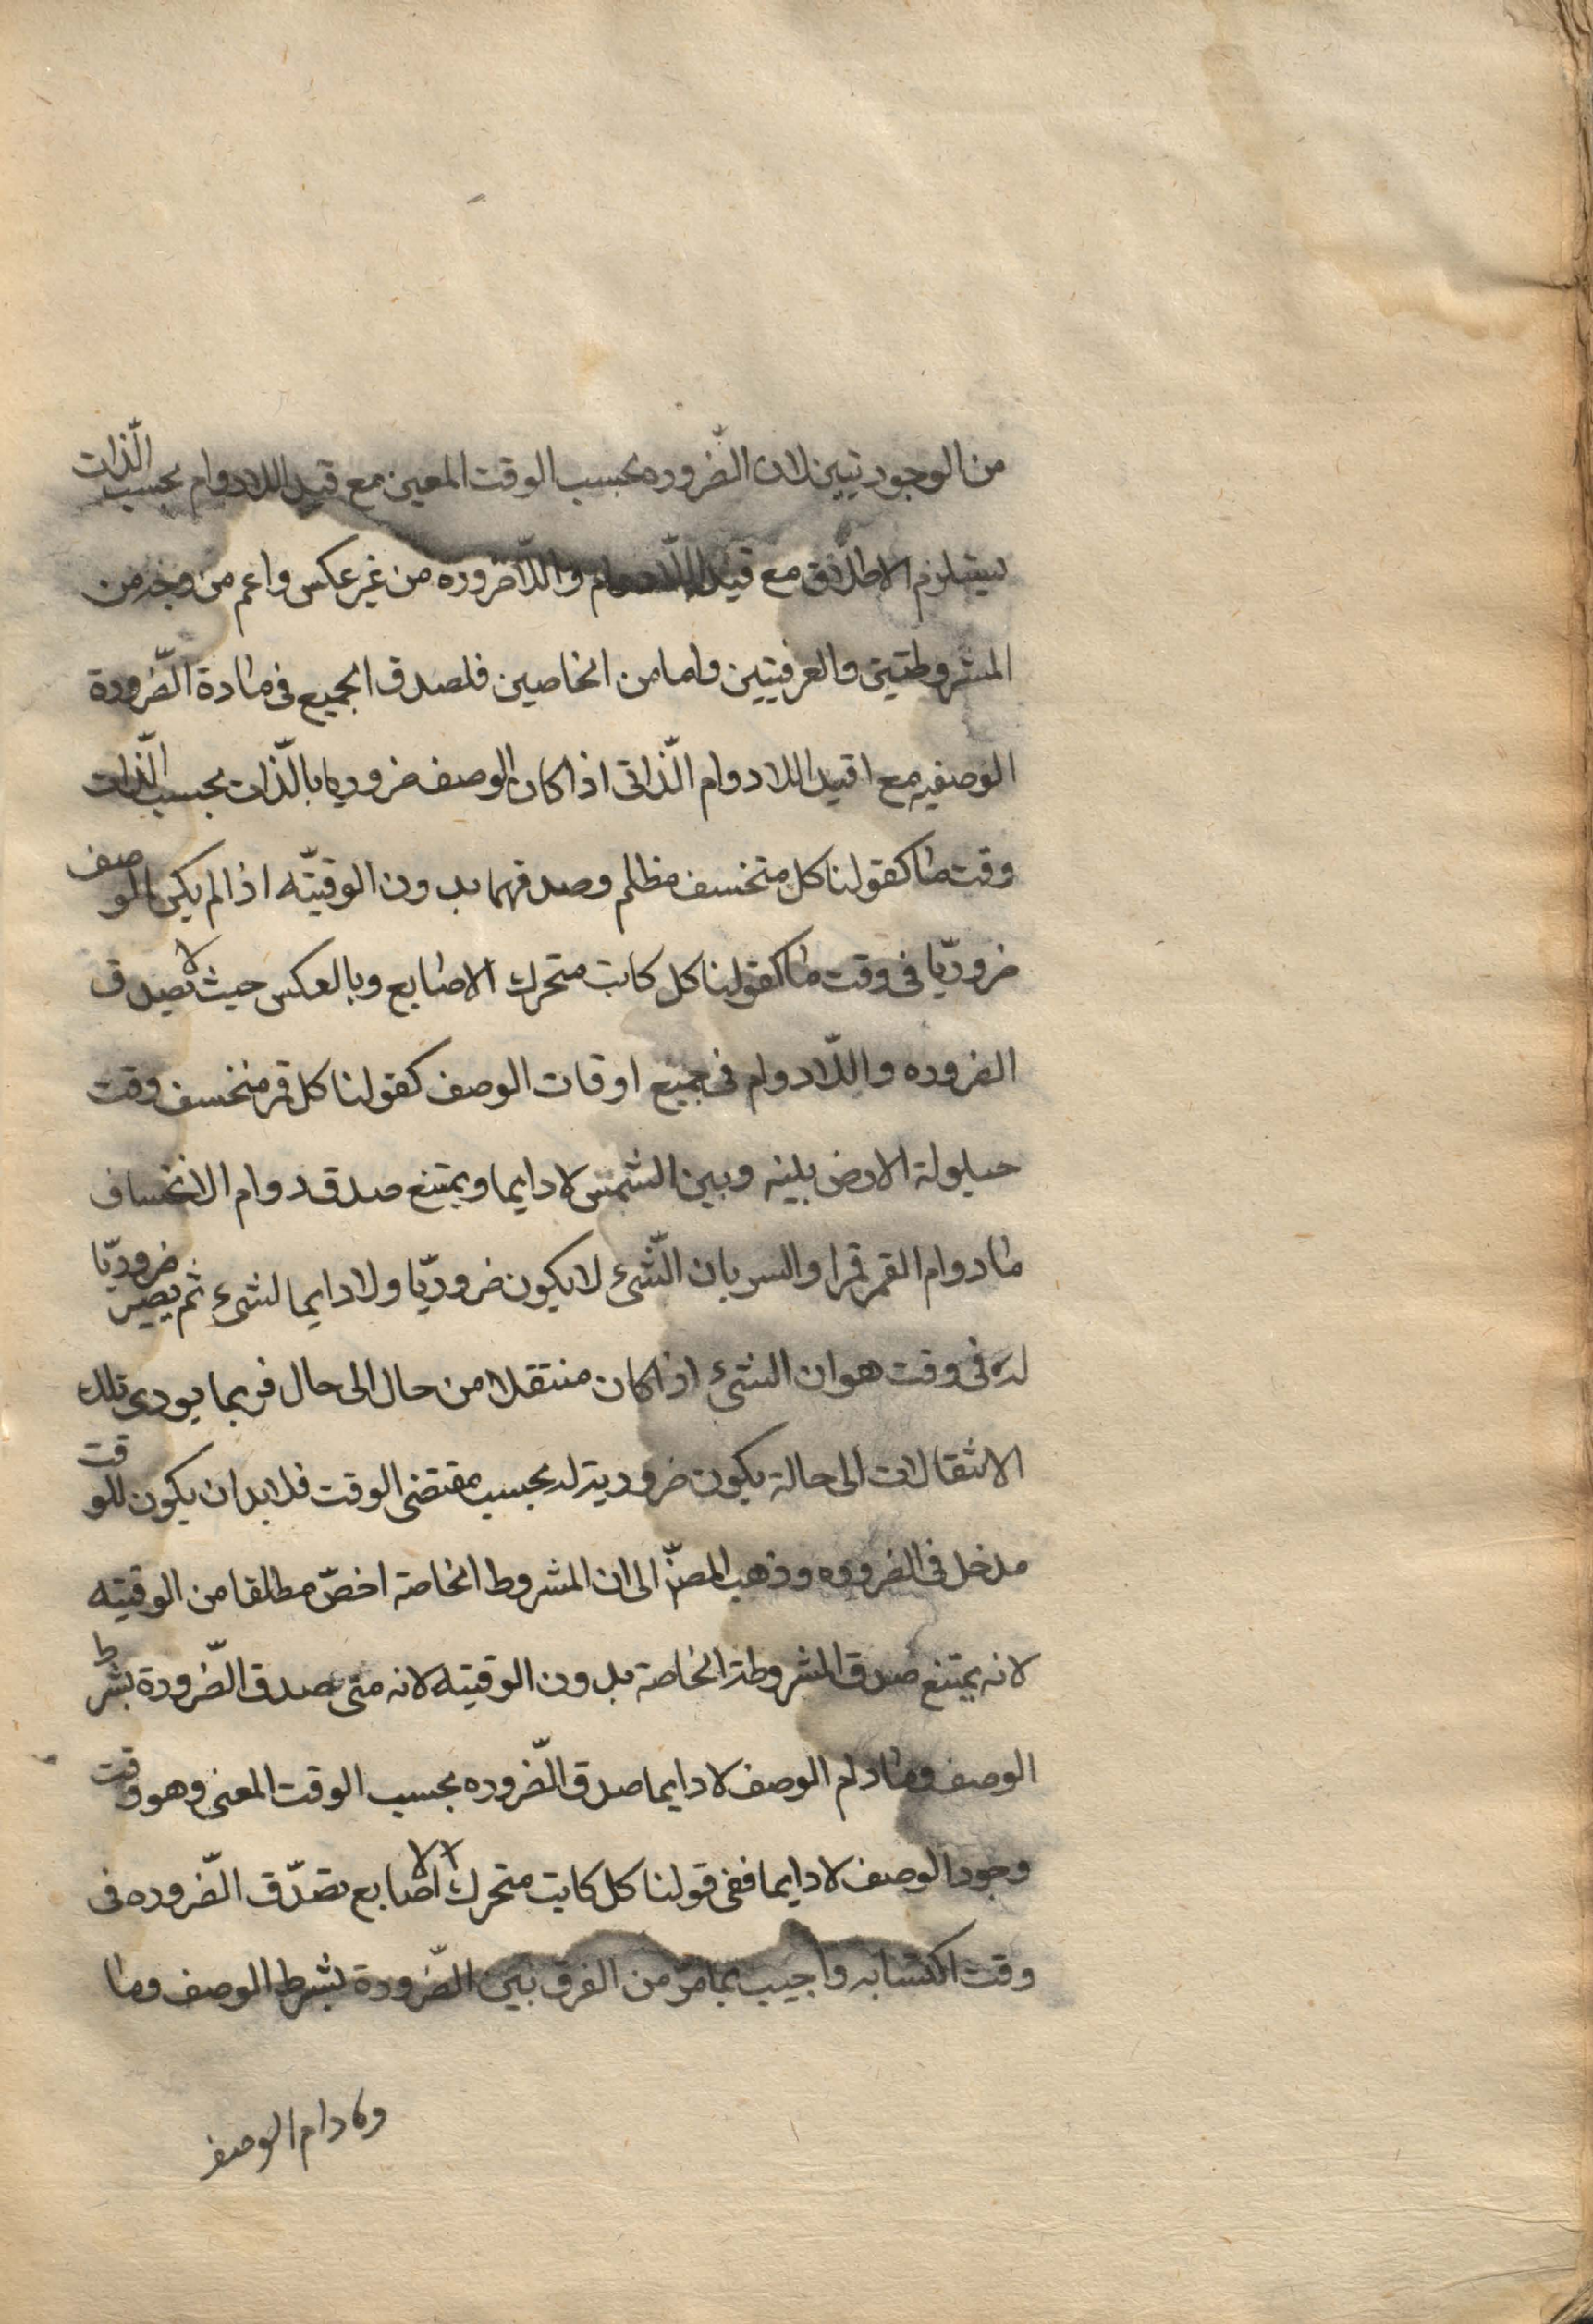 من الوجوديتين لان الضّروره بحسب الوقت المعين مع قيد اللادوام بحسب الّذات
يستلزم الاطلاق مع قيد اللّادوام واللّاضروره من غير عكس واعم من وجه من
المشروطتين والعرفيتين واما من الخاصين فلصدق الجميع فى مادة الضّرورة
الوصفيه مع اقيد اللادوام الّذاتى اذا كان الوصف ضروريا بالّذات بحسب الّذات
وقت ما كقولنا كل متخسف مظلم وصدقهما بدون الوقتيّه اذا لم يكن الوصف
ضروريّا فى وقت ما كقولنا كل كاتب متحرك الاصابع وبالعكس حيث لا تصدق
الضروره واللّادوام فى جميع اوقات الوصف كقولنا كل قمر منخسف وقت
حيلولة الارض بينه وبين الشمس لا دايما ويمتنع صدق دوام الانخساف
مادوام القمر قمرا والسر بان الشّىء لا يكون ضروريّا ولا دايما لشىء ثم يصير ضروريّا
له فى وقت هو ان الشىء اذا كان منتقلا من حال الى حال فربما يودى تلك
الانتقالات الى حالة يكون ضرورية له بحسب مقتضى الوقت فلا بد ان يكون للوقت
مدخل فى الضروره وذهب المصنّ الى ان المشروط الخاصة اخصّ مطلقا من الوقتيه
لانه يمتنع صدق المشروطة الخاصة بدون الوقتيه لانه متى صدق الضّرورة بشرط
الوصف ومادام الوصف لا دايما صدق الضّروره بحسب الوقت المعنى وهو وقت
وجود الوصف لا دايما ففى قولنا كل كاتب متحرك الاصابع تصدّق الضّروره فى
وقت اكتسابه واجيب بما مرّ من الفرق بين الضّرورة بشرط الوصف وما
ومادام الوصف